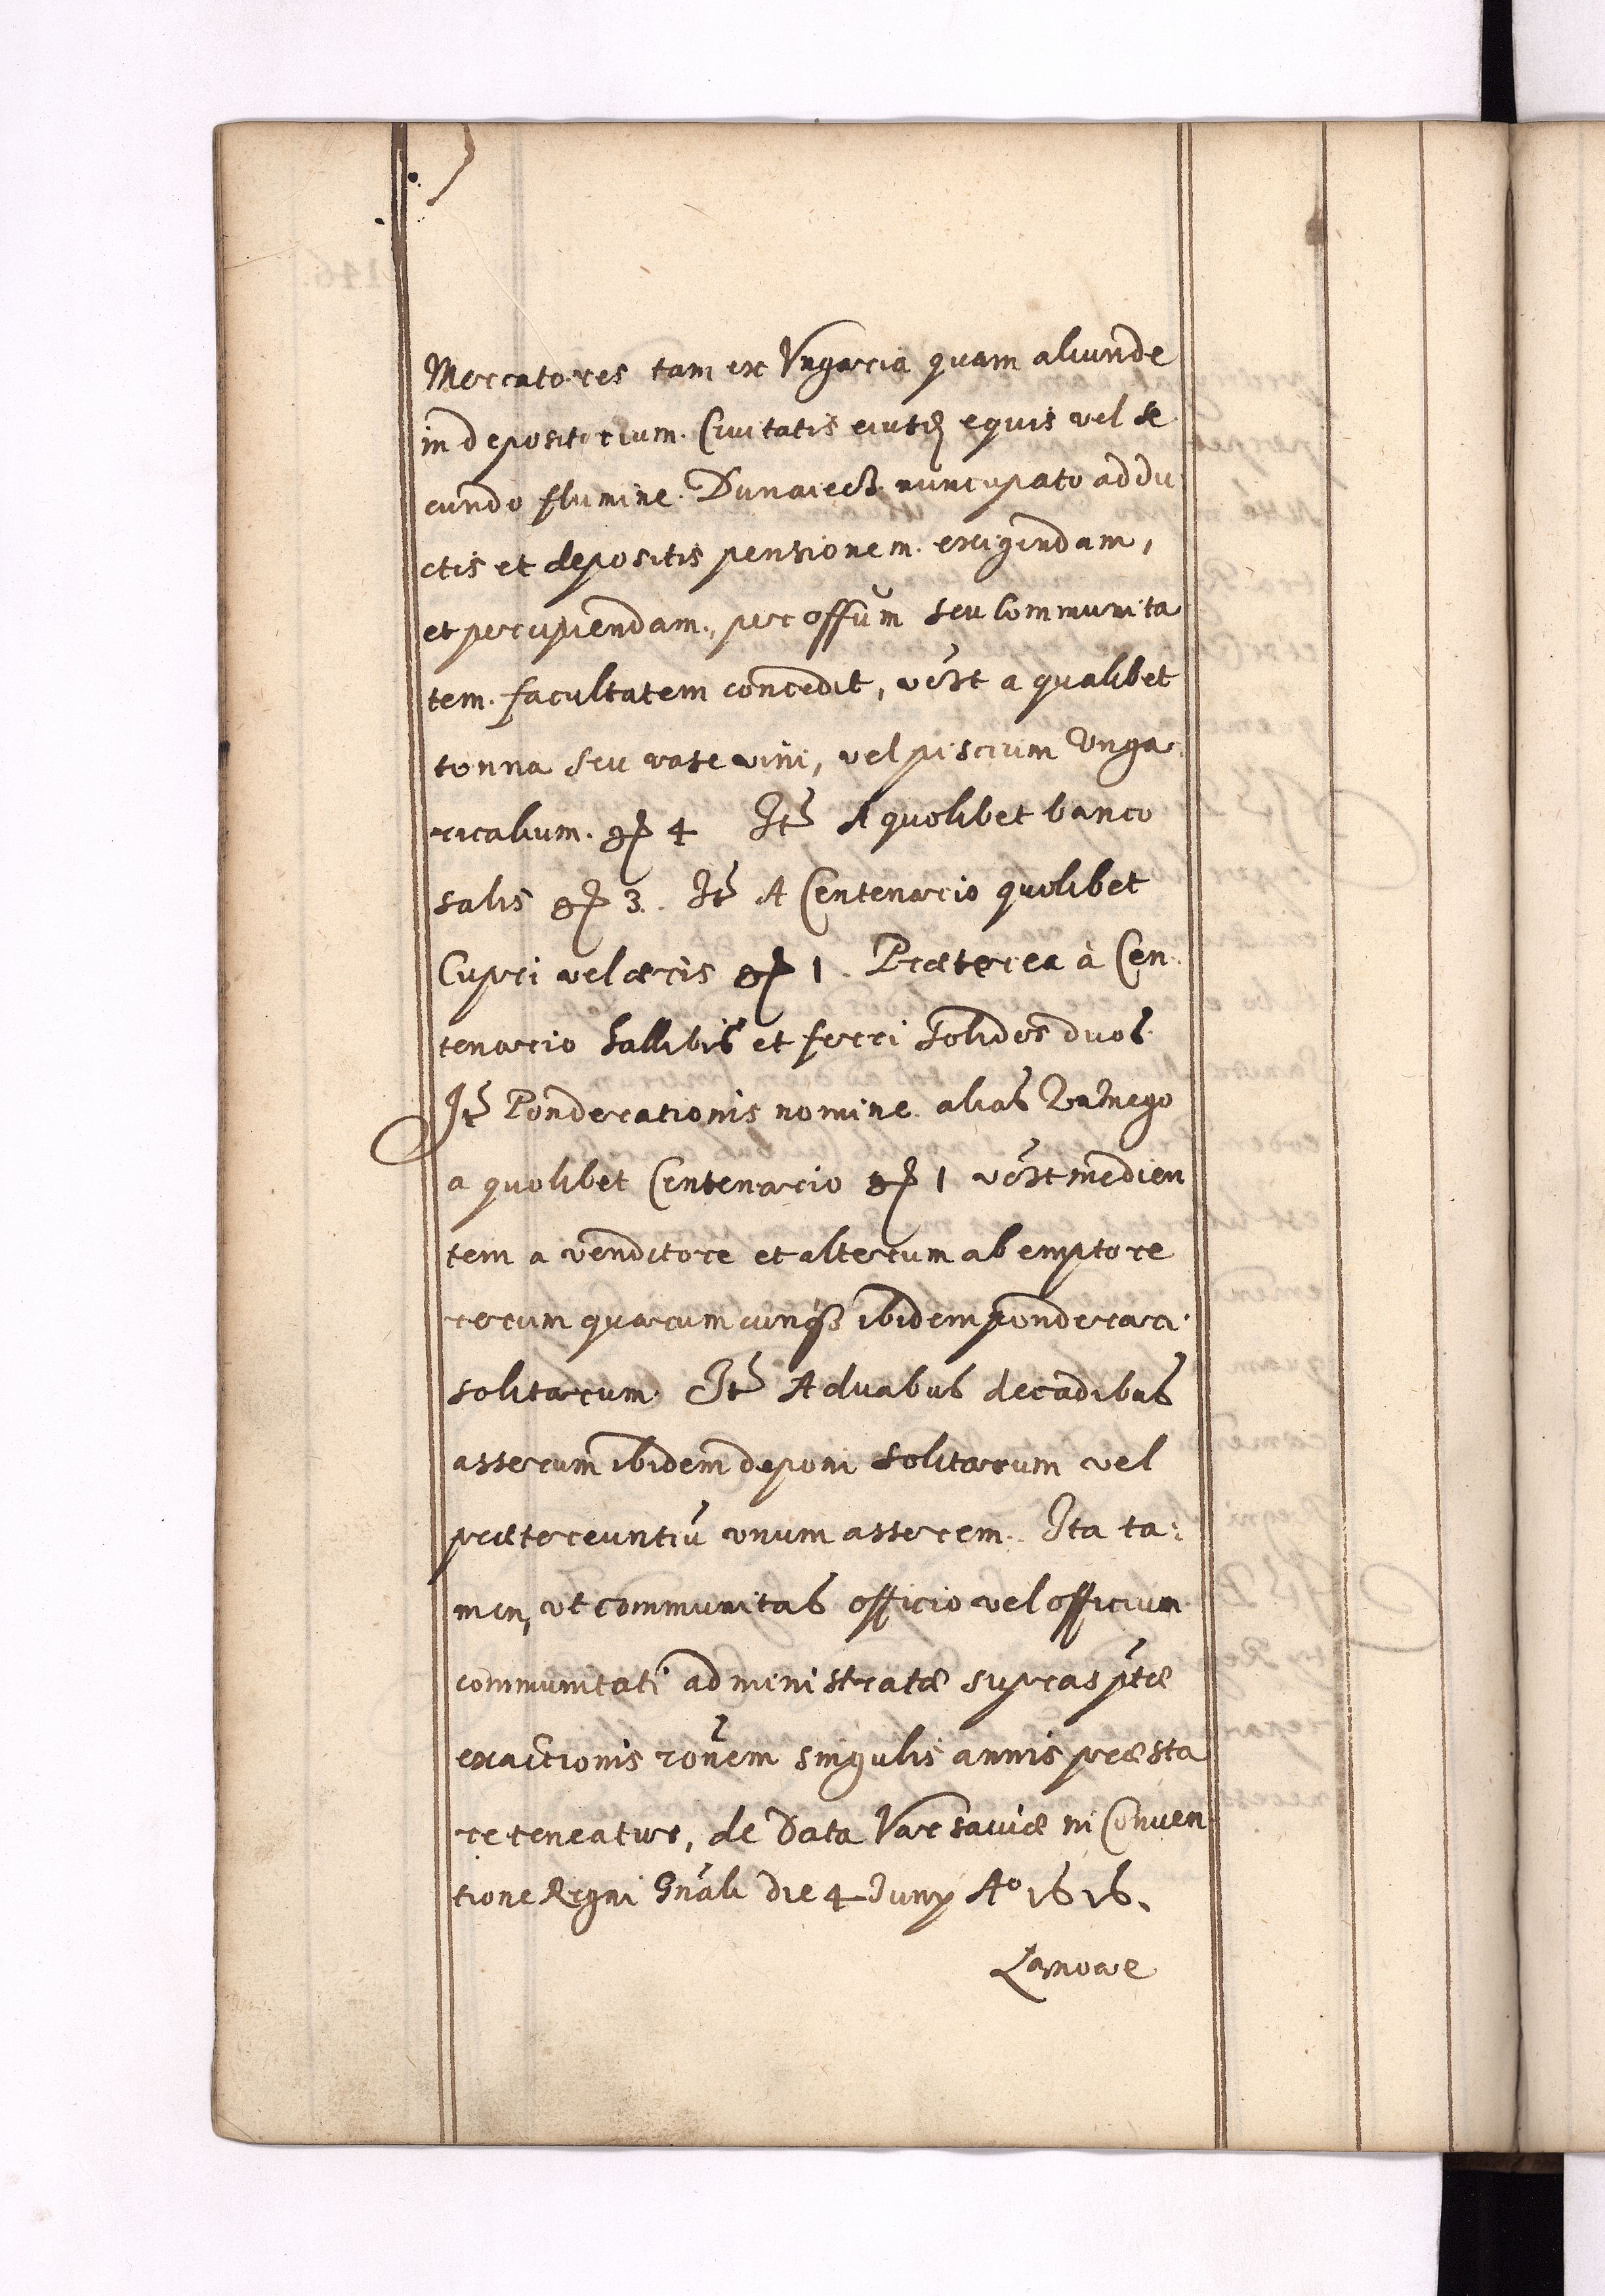 Mercatores tam ex Vngaria quam aliunde
in depositorium. Ciuitatis eiusd equis vel se
cundo flumine. Dunaiecz nuncupato addu
ctis et depositis pensionem. exigendam,
et percipiendam., per offũm seu Communita
tem. facultatem concedit, vt̃ẽst a qualibet
tonna seu vase vini, vel piscium Vnga
ricalium. gr 4 Itẽ A quolibet banco
salis gr 3. Itẽ A Centenario quolibet
Cupri vel æris gr 1. Præterea à Cen
tenario Sallibis et ferri solidos duos
Itẽ Ponderationis nomine alias Ważnego
a quolibet Centenario gr 1 vt̃ẽst medien
tem a venditore et alterum ab emptore
rerum quarumcunqȝ ibidem ponderari
solitarum Itẽ A duabus decadibus
asserum ibidem deponi solitarum vel
prætereuntiũ vnum asserem. Ita ta:
men, vt communitas officio vel officium
communitati administratæ suprasp̃tæ
exactionis rõnem singulis annis præsta
re teneatur, de Data Varsauiæ in Conuen
tione Regni Gñali die 4 Juny Aº 1616.
Lanowe